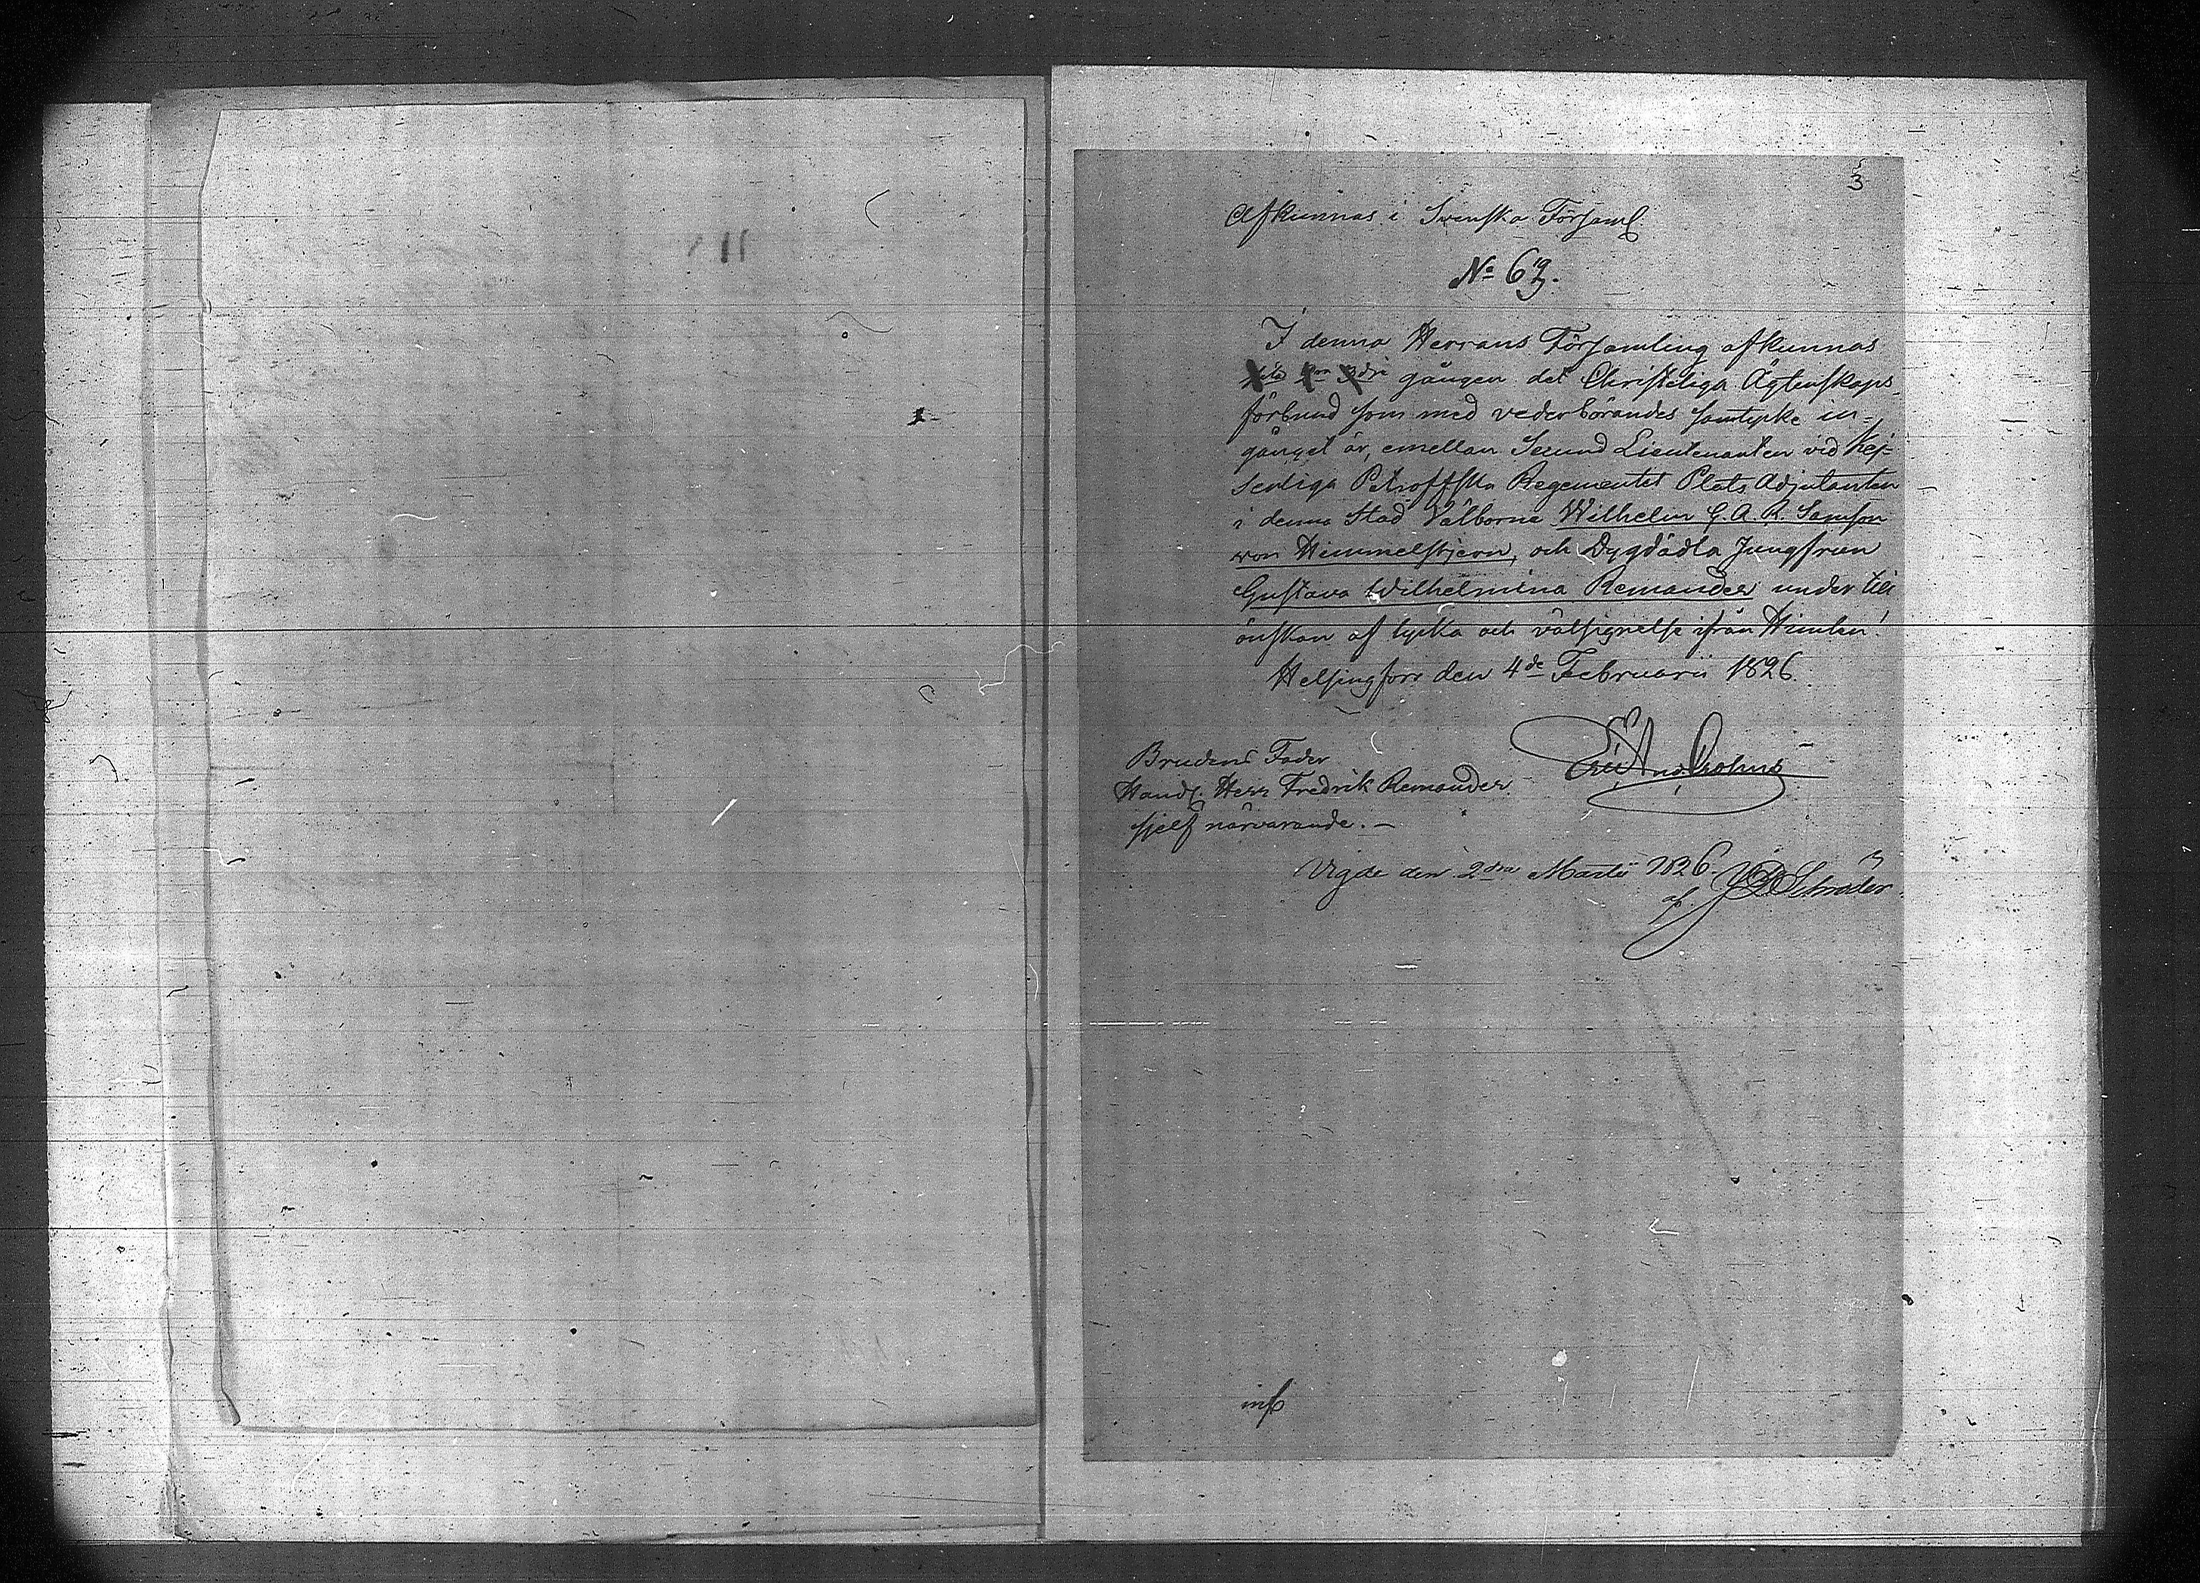 3
Afkunnas i Svenska Församl.
No 6
I denna Herrans Församling afkunnas
1sta 2dra 3dje gången det Christeliga Ägtenskaps-
förbund som med vederbörandes samtycke in-
gånget är, emellan Second Lieutenanten vid Kej-
serliga Petroffska Regementet Plats Adjutanten
i denna Stad Välborne Wilhelm G. A. R. Samson
von Himmelstjern, och Dygdädla Jungfrun
Gustava Wilhelmina Remander under till
önskan af lycka och välsignelse ifrån Himlen!
Helsingfors den 4de Februarii 1826.
Brudens Fader
Handl. Herr Fredrik Remander
sjelf närvarande. —
Vigde den 2dra Martii 1826.
af Schröder